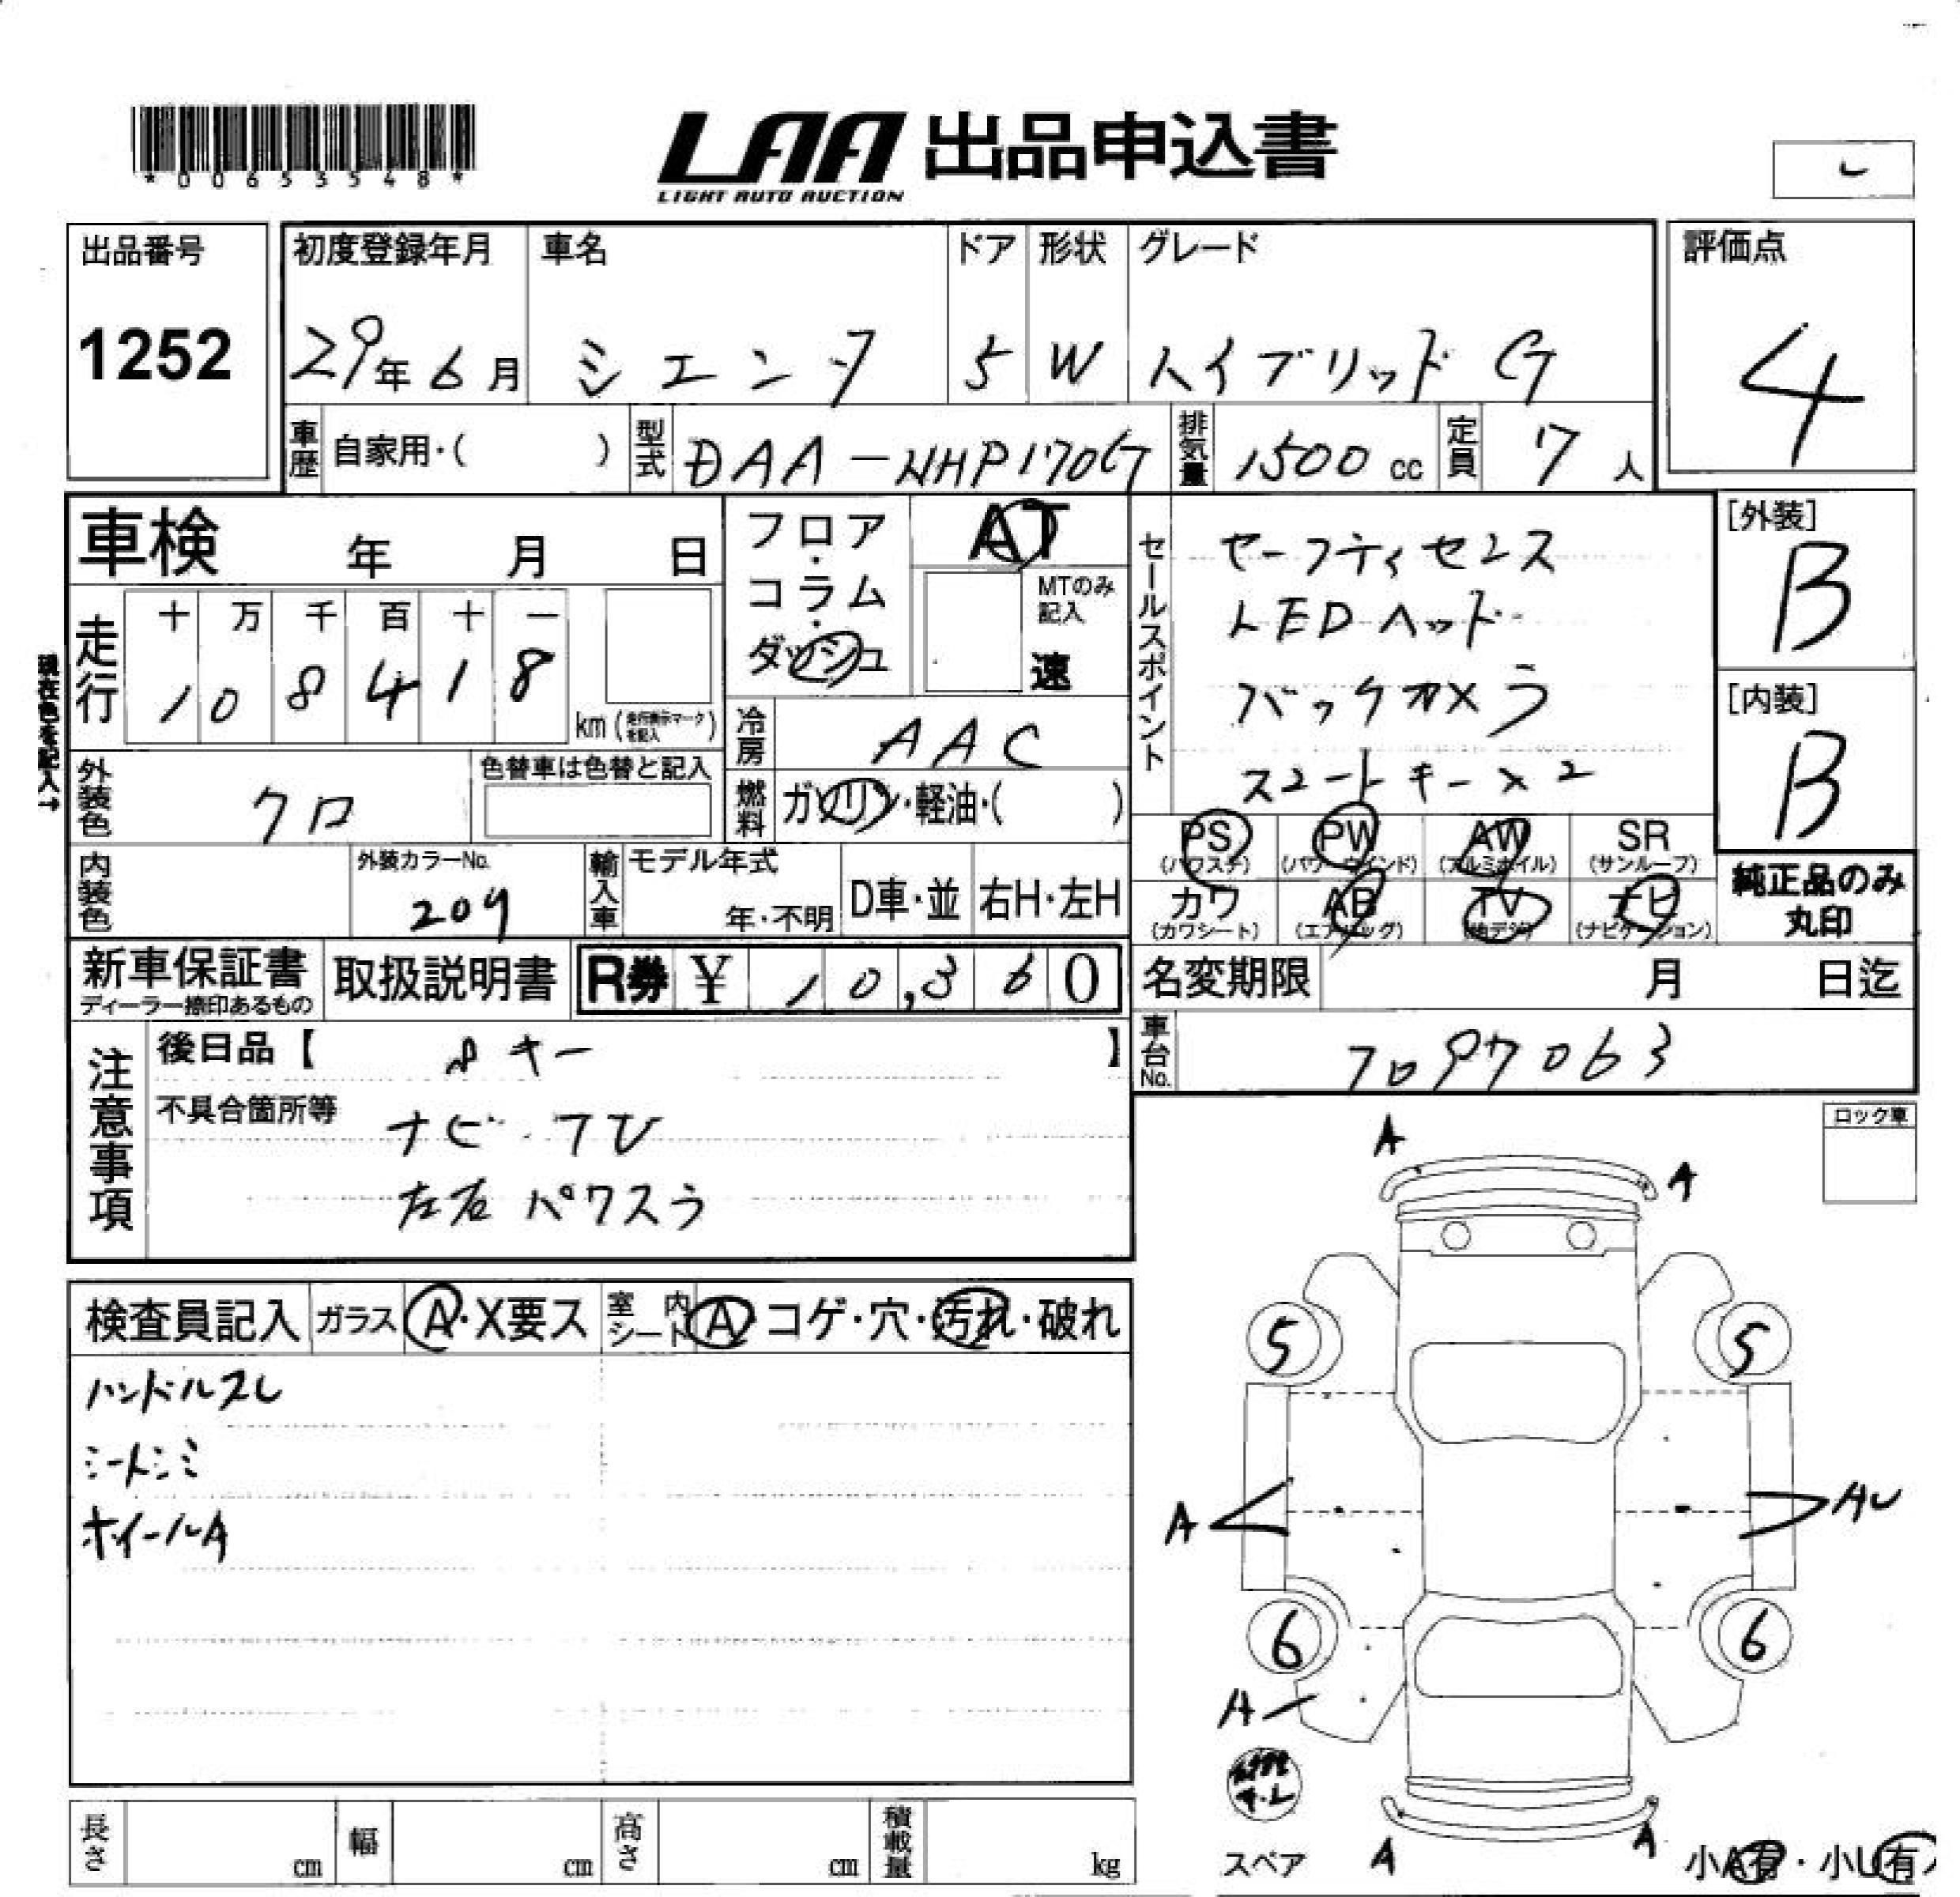 *00653548*
LAA 出品申込書
LIGHT AUTO AUCTION
出品番号
1252
初度登録年月
29年6月
車名
シエンタ
ドア
5
形状
W
グレード
ハイブリッド G
評価点
4
車歴 自家用・( )
型式 DAA-NHP170G
排気量 1500 cc
定員 7 人
車検 年 月 日
フロア・コラム・ダッシュ
AT
MTのみ記入
速
セールスポイント
セーフティセンス
LEDヘッド
バックカメラ
スマートキー×2
[外装]
B
[内装]
B
現在色を記入→
走行
十 万 千 百 十 一
1 0 8 4 1 8
km (走行表示マークを記入)
冷房 AAC
燃料 ガソリン・軽油・( )
外装色 クロ
色替車は色替と記入
内装色
外装カラーNo.
209
輸入車 モデル年式
年・不明
D車・並
右H・左H
PS (パワステ)
PW (パワーウインド)
AW (アルミホイル)
SR (サンルーフ)
カワ (カワシート)
AB (エアバッグ)
TV (地デジ)
ナビ (ナビゲーション)
純正品のみ
丸印
新車保証書
ディーラー捺印あるもの
取扱説明書
R券 ¥ 10,360
名変期限 月 日迄
車台No. 7097063
注意事項
後日品【 キー 】
不具合箇所等
ナビ・TV
左右パワスラ
ロック車
検査員記入
ガラス A・X要ス
室内シート A コゲ・穴・汚れ・破れ
ハンドルスレ
シートシミ
ホイールA
A
A
5
5
A
AU
6
6
A
スペア
A
A
小A有・小U有
長さ cm
幅 cm
高さ cm
積載量 kg